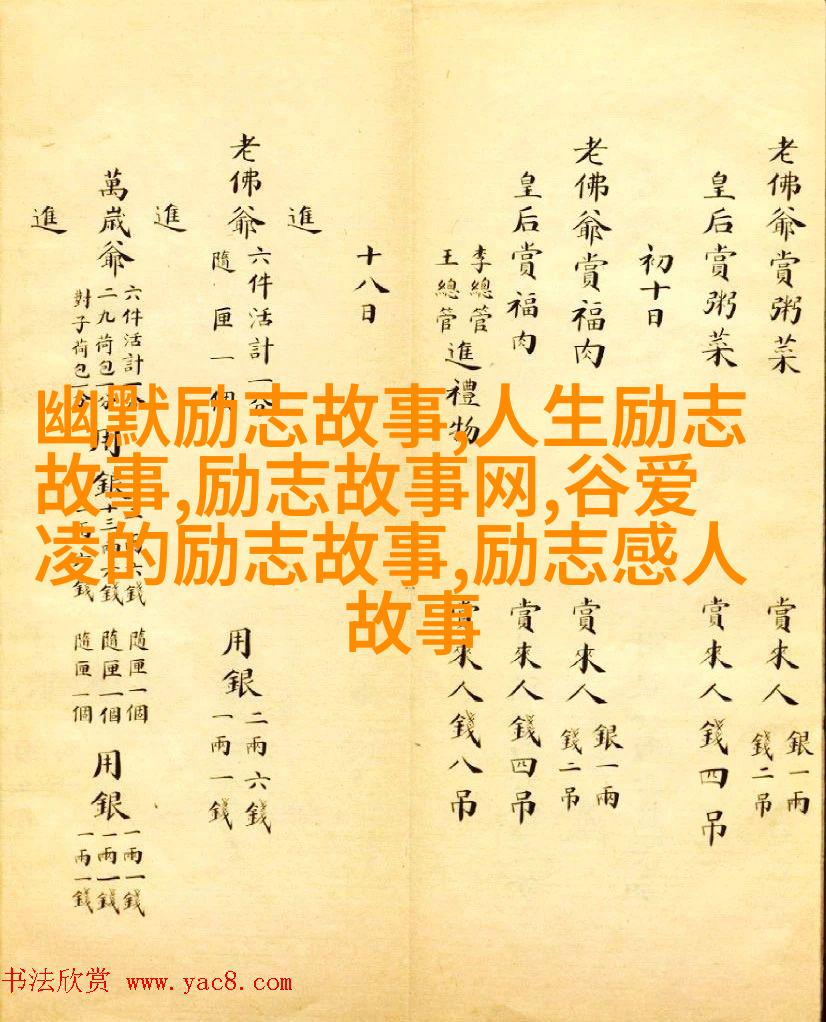 老佛爺賞粥菜 賞來人 銀一兩 錢二吊
皇后賞粥菜 賞來人錢四吊
初十日
老佛爺賞福肉 賞來人 銀一兩 錢二吊
皇后賞福肉 賞來人錢四吊
李總管 王總管 進禮物 賞來人錢八吊
十八日
進
老佛爺 六件活計一分 隨匣一個 用銀 二兩六錢 一兩一錢
進
萬歲爺 六件活計一分 二九荷包一分 對子荷包一分 用銀 隨匣一個 隨匣一個 隨匣一個 用銀 一兩一錢 一兩一錢 一兩一錢
進
幽默励志故事,人生励志
故事,励志故事网,谷爱
凌的励志故事,励志感人
故事
书法欣赏 www.yac8.com